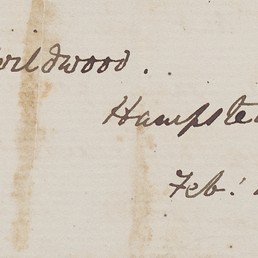 Wildwood.
Hampste
Feb: